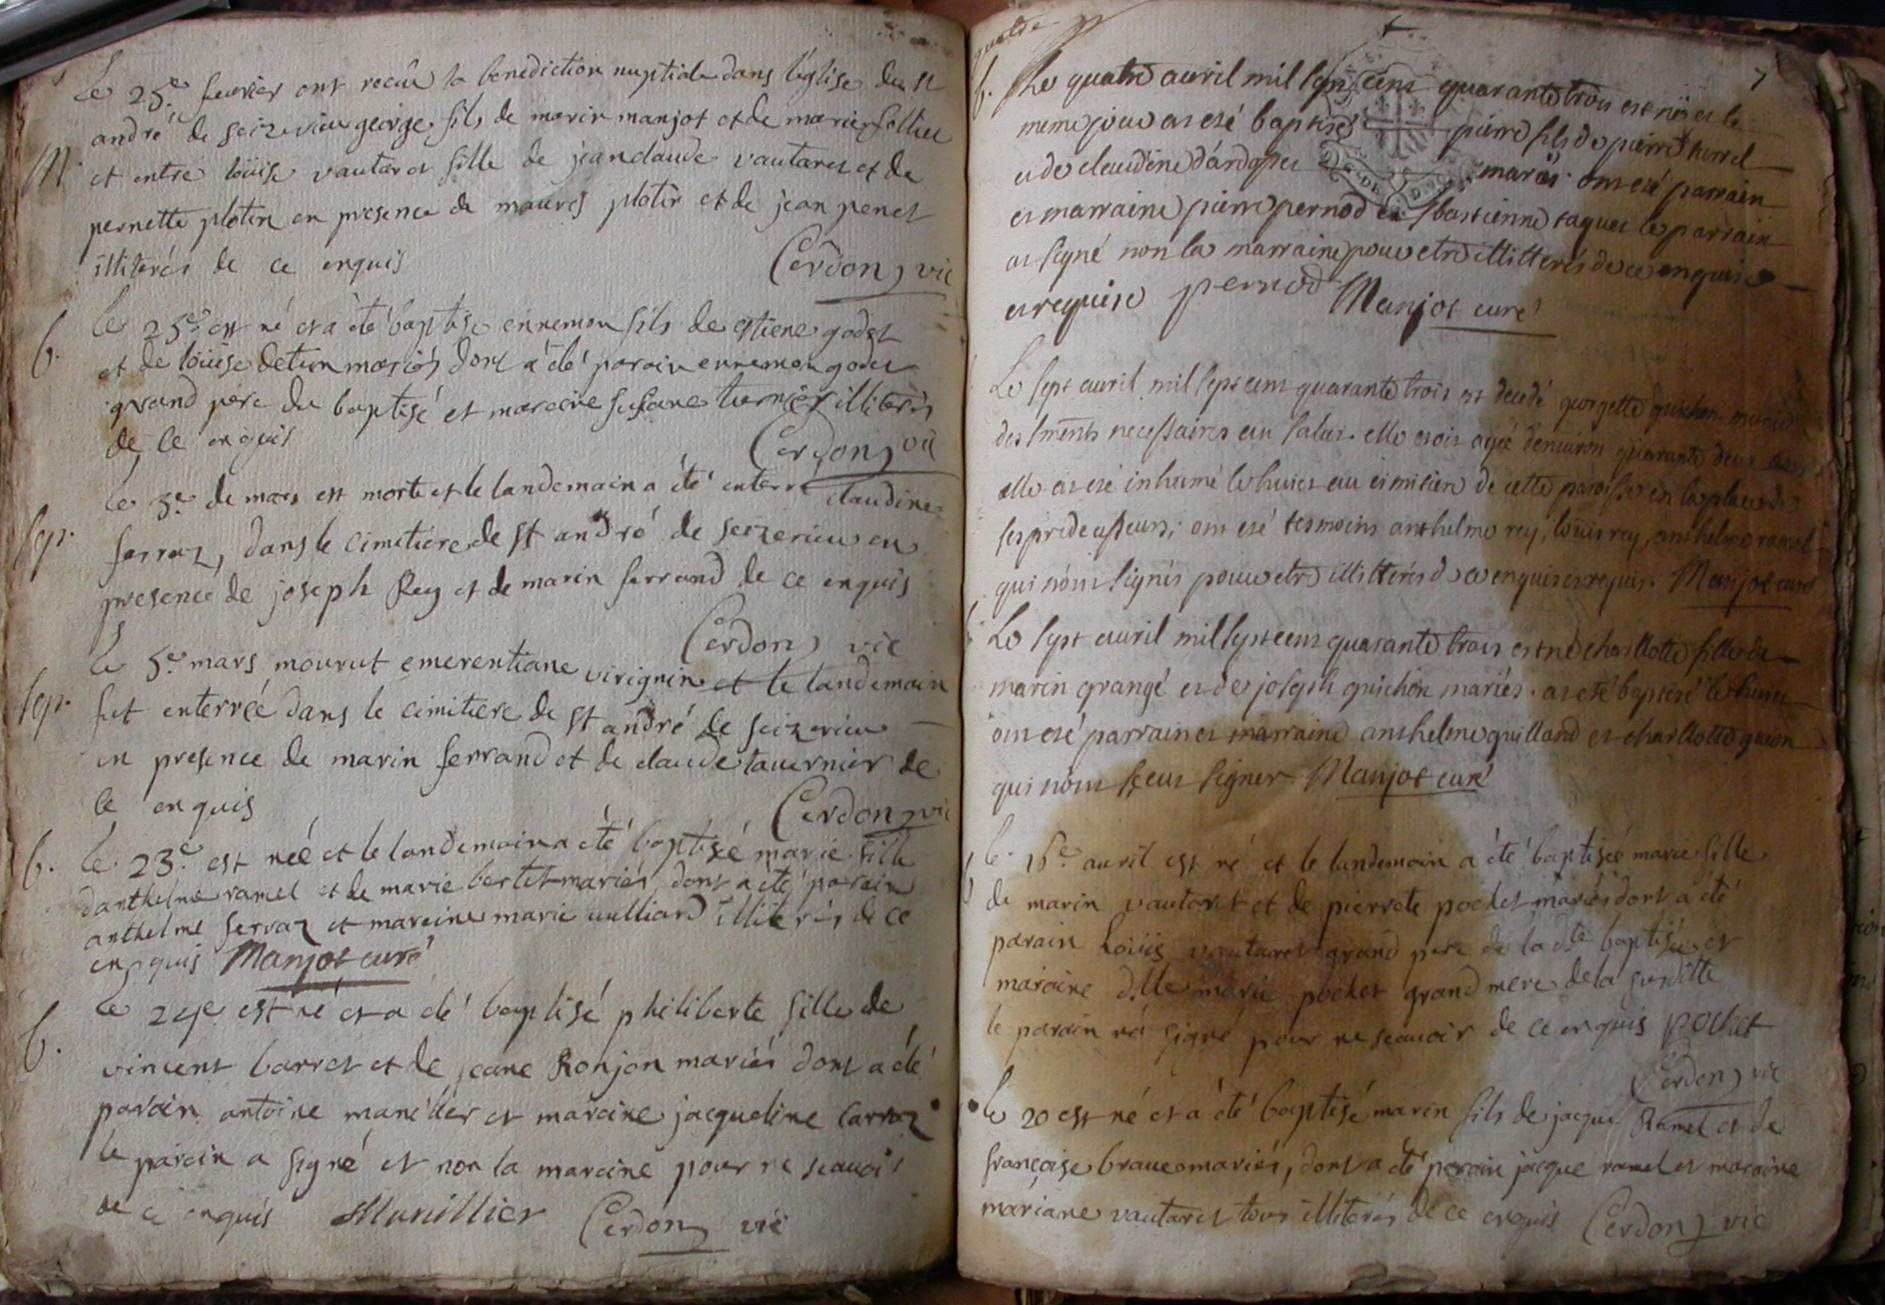 Le 25e fevrier ont recû la benediction nuptiale dans l'église du st
andré de seizerieu george fils de marin manjot et de marie follieu
M. et entre loüise vautaret fille de jean claude vautaret et de
pernette plotin en presence de maures plotin et de jean penet
illiterés de ce enquis Cerdon, vic
b. le 25e est né et a été baptisé ennemon fils de etiene godet
et de loüise detern mariés dont a été parain ennemon godet
grand pere du baptisé et maraine susane turnier illiterés
de ce enquis Cerdon, vic
sep. le 3e de mars est morte et le landemain a été enterré claudine
ferraz, dans le cimitiere de st andré de seizerieu en
presence de joseph Rey et de marin ferrand de ce enquis
Cerdon, vic
sep. le 5e mars mourut emerentiane virignin et le landemain
fut enterrée dans le cimitiere de st andré de seizerieu
en presence de marin ferrand et de claude tavernier de
ce enquis Cerdon, vic
b. le 23e est née et le landemain a été baptisé marie fille
d'anthelme ramel et de marie bertet mariés, dont a été parain
anthelme ferraz et maraine marie vulliard illiterés de ce
enquis Manjot curé
b. Le 24e est né et a été baptisé philiberte fille de
vincent barret et de jeane Ronjon mariés dont a été
parain antoine manillier et maraine jacqueline carraz
le parain a signé et non la maraine pour ne scauoir
de ce enquis Manillier Cerdon, vic
7
b. Le quatre auril mil sept cent quarante trois est né et le
meme jour at eté baptisé pierre fils de pierre turrel
et de claudine dardasset mariés. ont eté parrain
et marraine pierre pernod et sbastienne taquet le parrain
at signé non la marraine pour etre illitterés de ce enquise
et requise pernod Manjot curé
Le sept auril mil sept cent quarante trois est decedé georgette guichon munie
des sments necessaires au salut. elle etoit agée denuiron quarante deux ans
elle at eté inhumé le huict au cimitiere de cette paroisse en la place de
ses predecesseurs; ont eté tesmoins anthelme rey, loüis rey, anthelme ramel
qui n'ont signés pour etre illitterés de ce enquis et requis. Manjot curé
b. Le sept auril mil sept cent quarante trois est né charllotte fille de
marin grangé et de joseph guichon mariés. at eté baptisé le huict
ont eté parrain et marraine anthelme guilland et charllotte guion
qui n'ont sceut signer Manjot curé
b le 16e auril est né et le landemain a été baptisée marie fille
de marin vautaret et de pierrete pochet mariés dont a été
parain Loüis vautaret grand pere de la dte baptisée et
maraine d.lle marie pochet grand mere de la susditte
le parain n'a signé pour ne scauoir de ce enquis pochet
Cerdon, vic
le 20 est né et a été baptisé marin fils de jacque Ramel et de
françoise braue mariés, dont a été parain jacque ramel et maraine
mariane vautaret tous illiterés de ce enquis Cerdon, vic